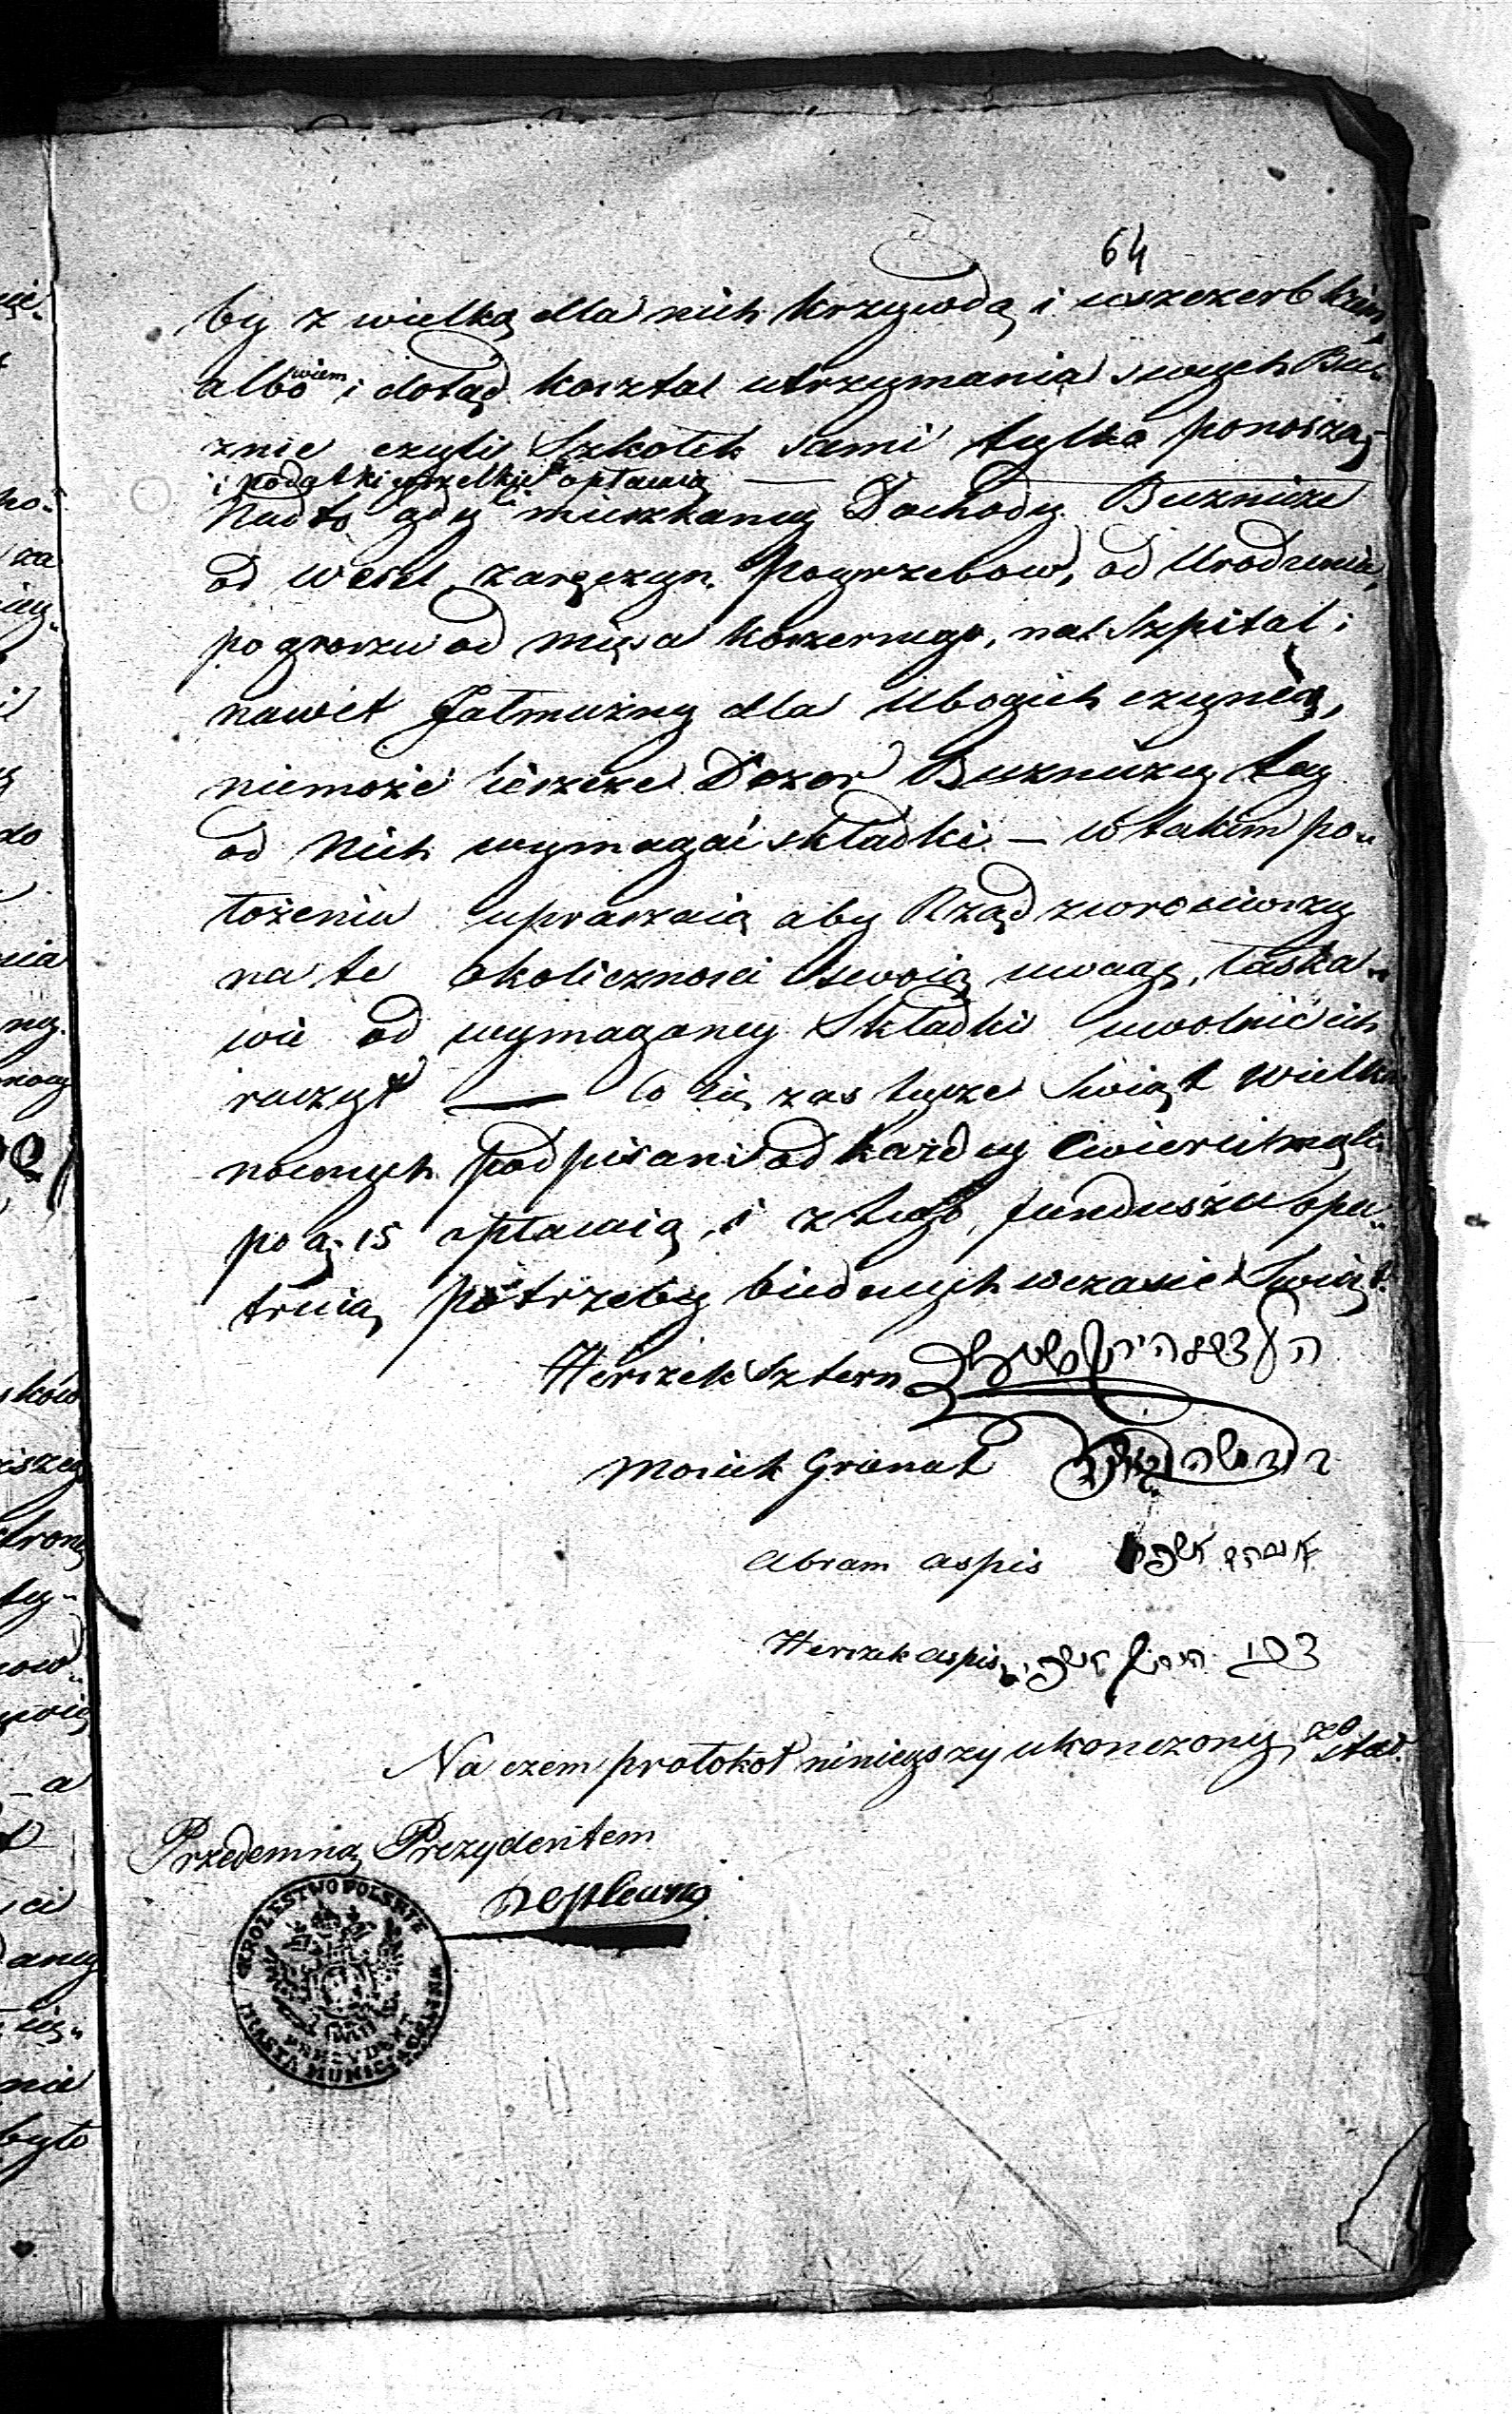 64
by z wielką dla nich krzywdą i uszczerbkiem,
albowiem i dotąd koszta utrzymania swych Bu„
znic czyli Szkołek sami tylko ponoszą
i podatki wszelkie opłacaią —
Nadto gdy ci mieszkancy Dochody Buznicze
od Wesel, zaręczyn, Pogrzebow, od Urodzenia,
po groszu od mięsa koszernego, na Szpital i
nawet Jałmużny dla Ubogich czynią,
niemoże ieszcze Dozor Buzniczy tey
od Nich wymagać składki — w takim po„
łożeniu upraszaią aby Rząd zwrociwszy
na te okoliczności swoią uwagę, łaska„
wie od wymaganey Składki uwolnić ich
raczył — Co się zas tycze Swiąt Wielka
nocnych podpisani od każdey Cwierci mąki
po g. 15 opłacaią, i z tego funduszu opa„
truią potrzeby biednych w czasie Swiąt.
Herszek Sztern
Mosiek Granat
Abram Aspis אברהם אשפיס
Herszek Aspis הירש אשפיס
Na czem protokoł ninieyszy ukonczony został
Przedemną Prezydentem
KROLESTWO POLSKIE
PREZYDENT
MIASTA MUNICYPALNEGO